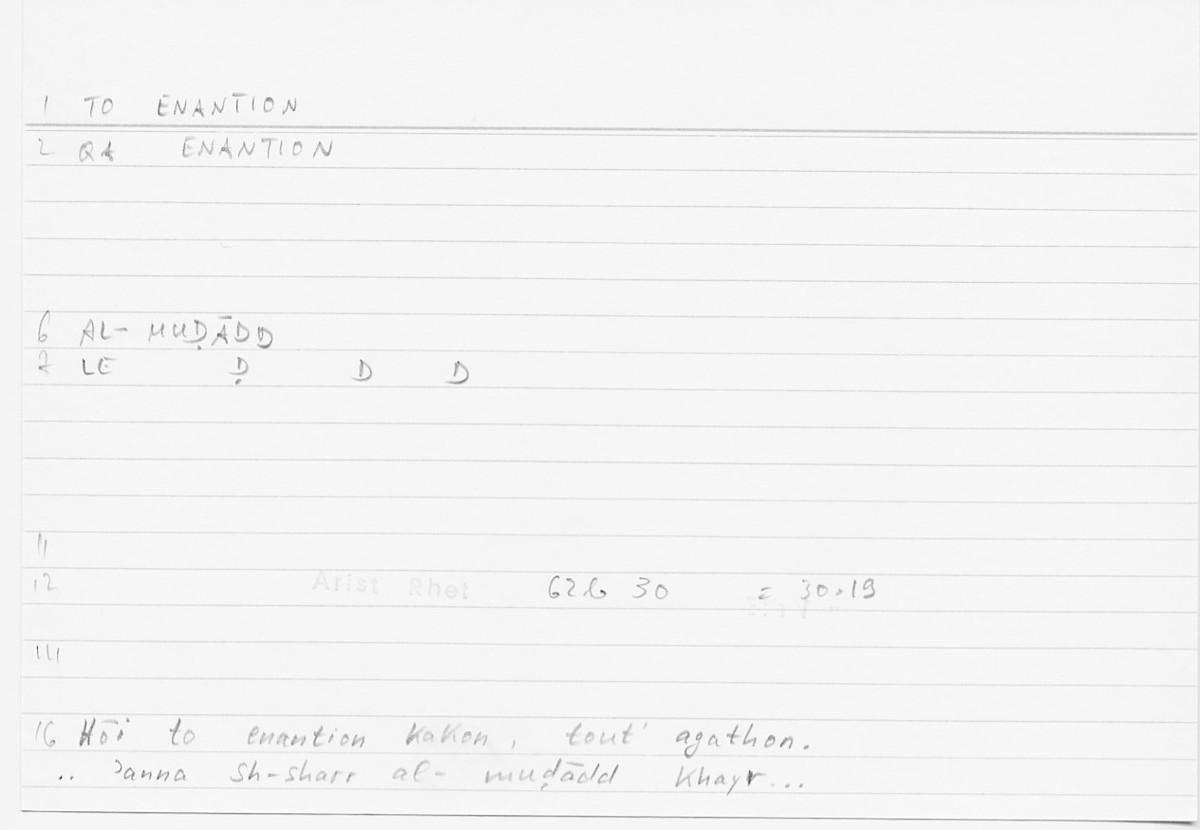 1 TO ENANTION
2 QA ENANTION
6 AL-MUḌĀDD
7 LE Ḍ D D
11
12 Arist Rhet 62b 30 = 30.19
14
16 Hōi to enantion kakon, tout' agathon.
.. ʾanna sh-sharr al-muḍādd khayr...